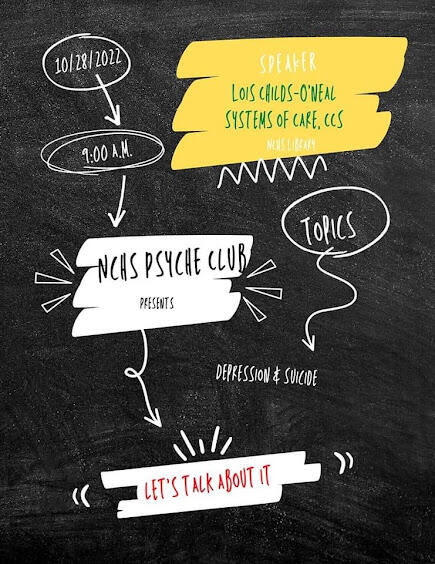 10/28/2022
9:00 A.M.
SPEAKER
LOIS CHILDS-O'NEAL
SYSTEMS OF CARE, CCS
NCHS LIBRARY
NCHS PSYCHE CLUB
PRESENTS
TOPICS
DEPRESSION & SUICIDE
LET'S TALK ABOUT IT